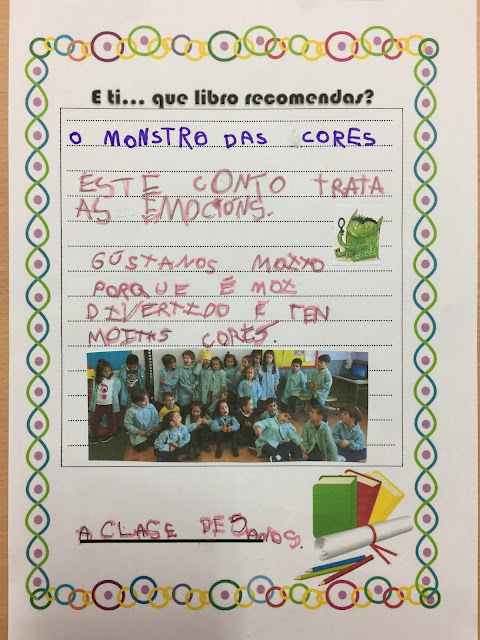 E ti... que libro recomendas?
O MONSTRO DAS CORES
ESTE CONTO TRATA
AS EMOCIÓNS.
GÚSTANOS MOITO
PORQUE É MOI
DIVERTIDO E TEN
MOITAS CORES.
A CLASE DE 5 ANOS.